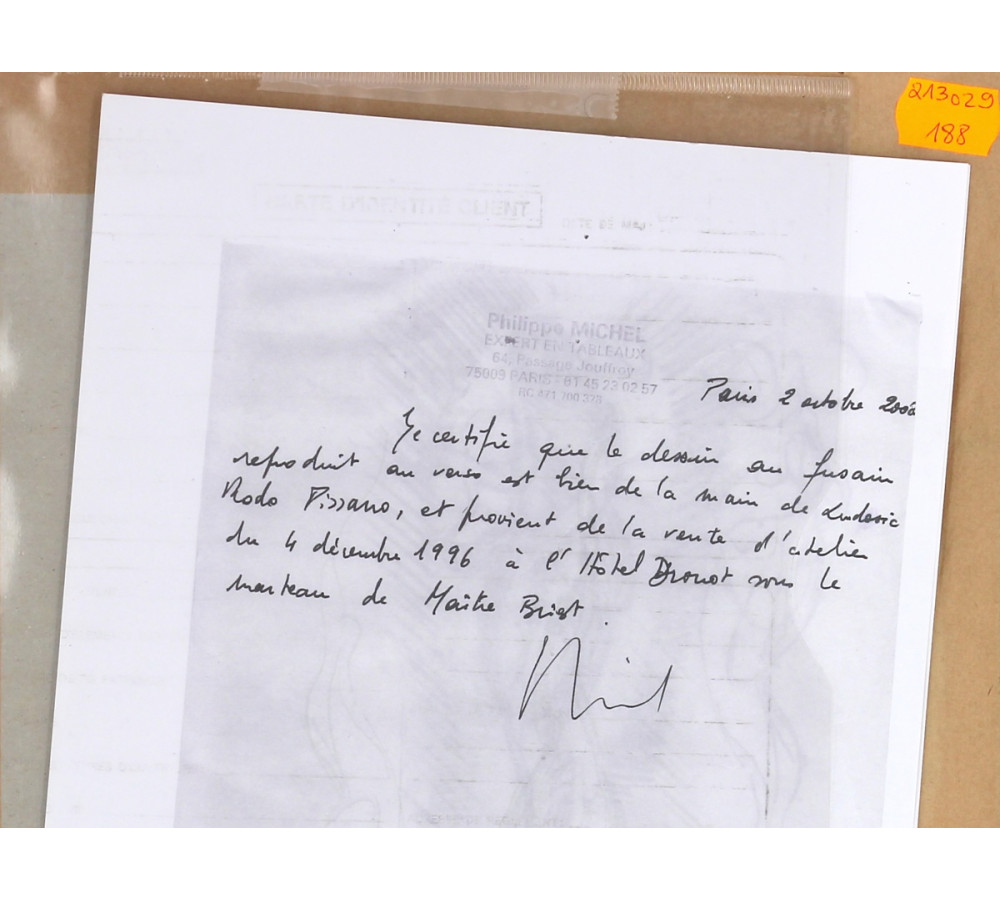 213029
188
CARTE D'IDENTITÉ CLIENT
Philippe MICHEL
EXPERT EN TABLEAUX
64, Passage Jouffroy
75009 PARIS - 01 45 23 02 57
RC 471 700 373
Paris 2 octobre 2000
Je certifie que le dessin au fusain
reproduit au verso est bien de la main de Ludovic
Rodo Pissarro, et provient de la vente d'atelier
du 4 décembre 1996 à l'Hôtel Drouot sous le
marteau de Maître Briest.